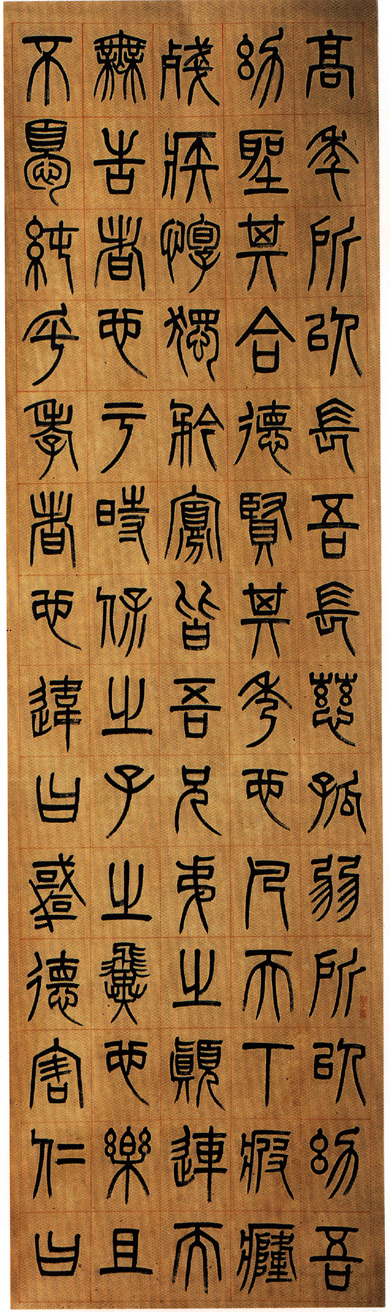 高年所以長吾長慈孤弱所以幼吾
幼聖其合德賢其秀也凡天下疲癃
殘疾惸獨矜寡皆吾兄弟之顛連而
無告者也于時保之子之翼也樂且
不憂純乎孝者也違曰悖德害仁曰